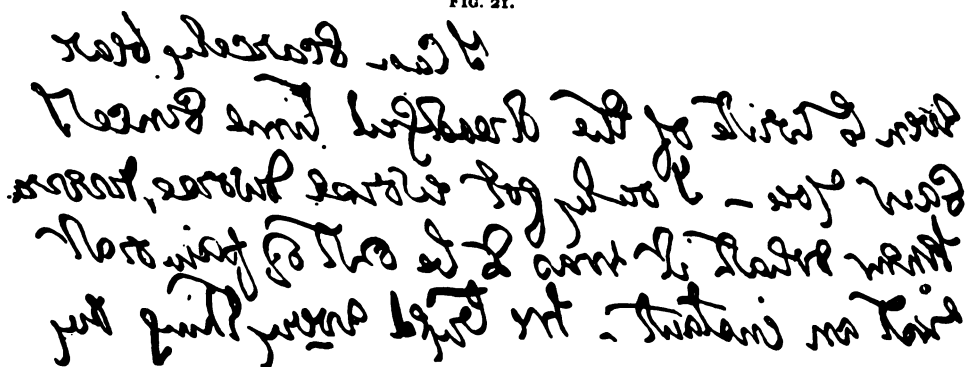 FIG. 21.
I can scarcely bear
even to write of the dreadful time since I
saw you – I only got worse & worse, never
knew what it was to be out of pain or at
rest an instant - We tried every thing my